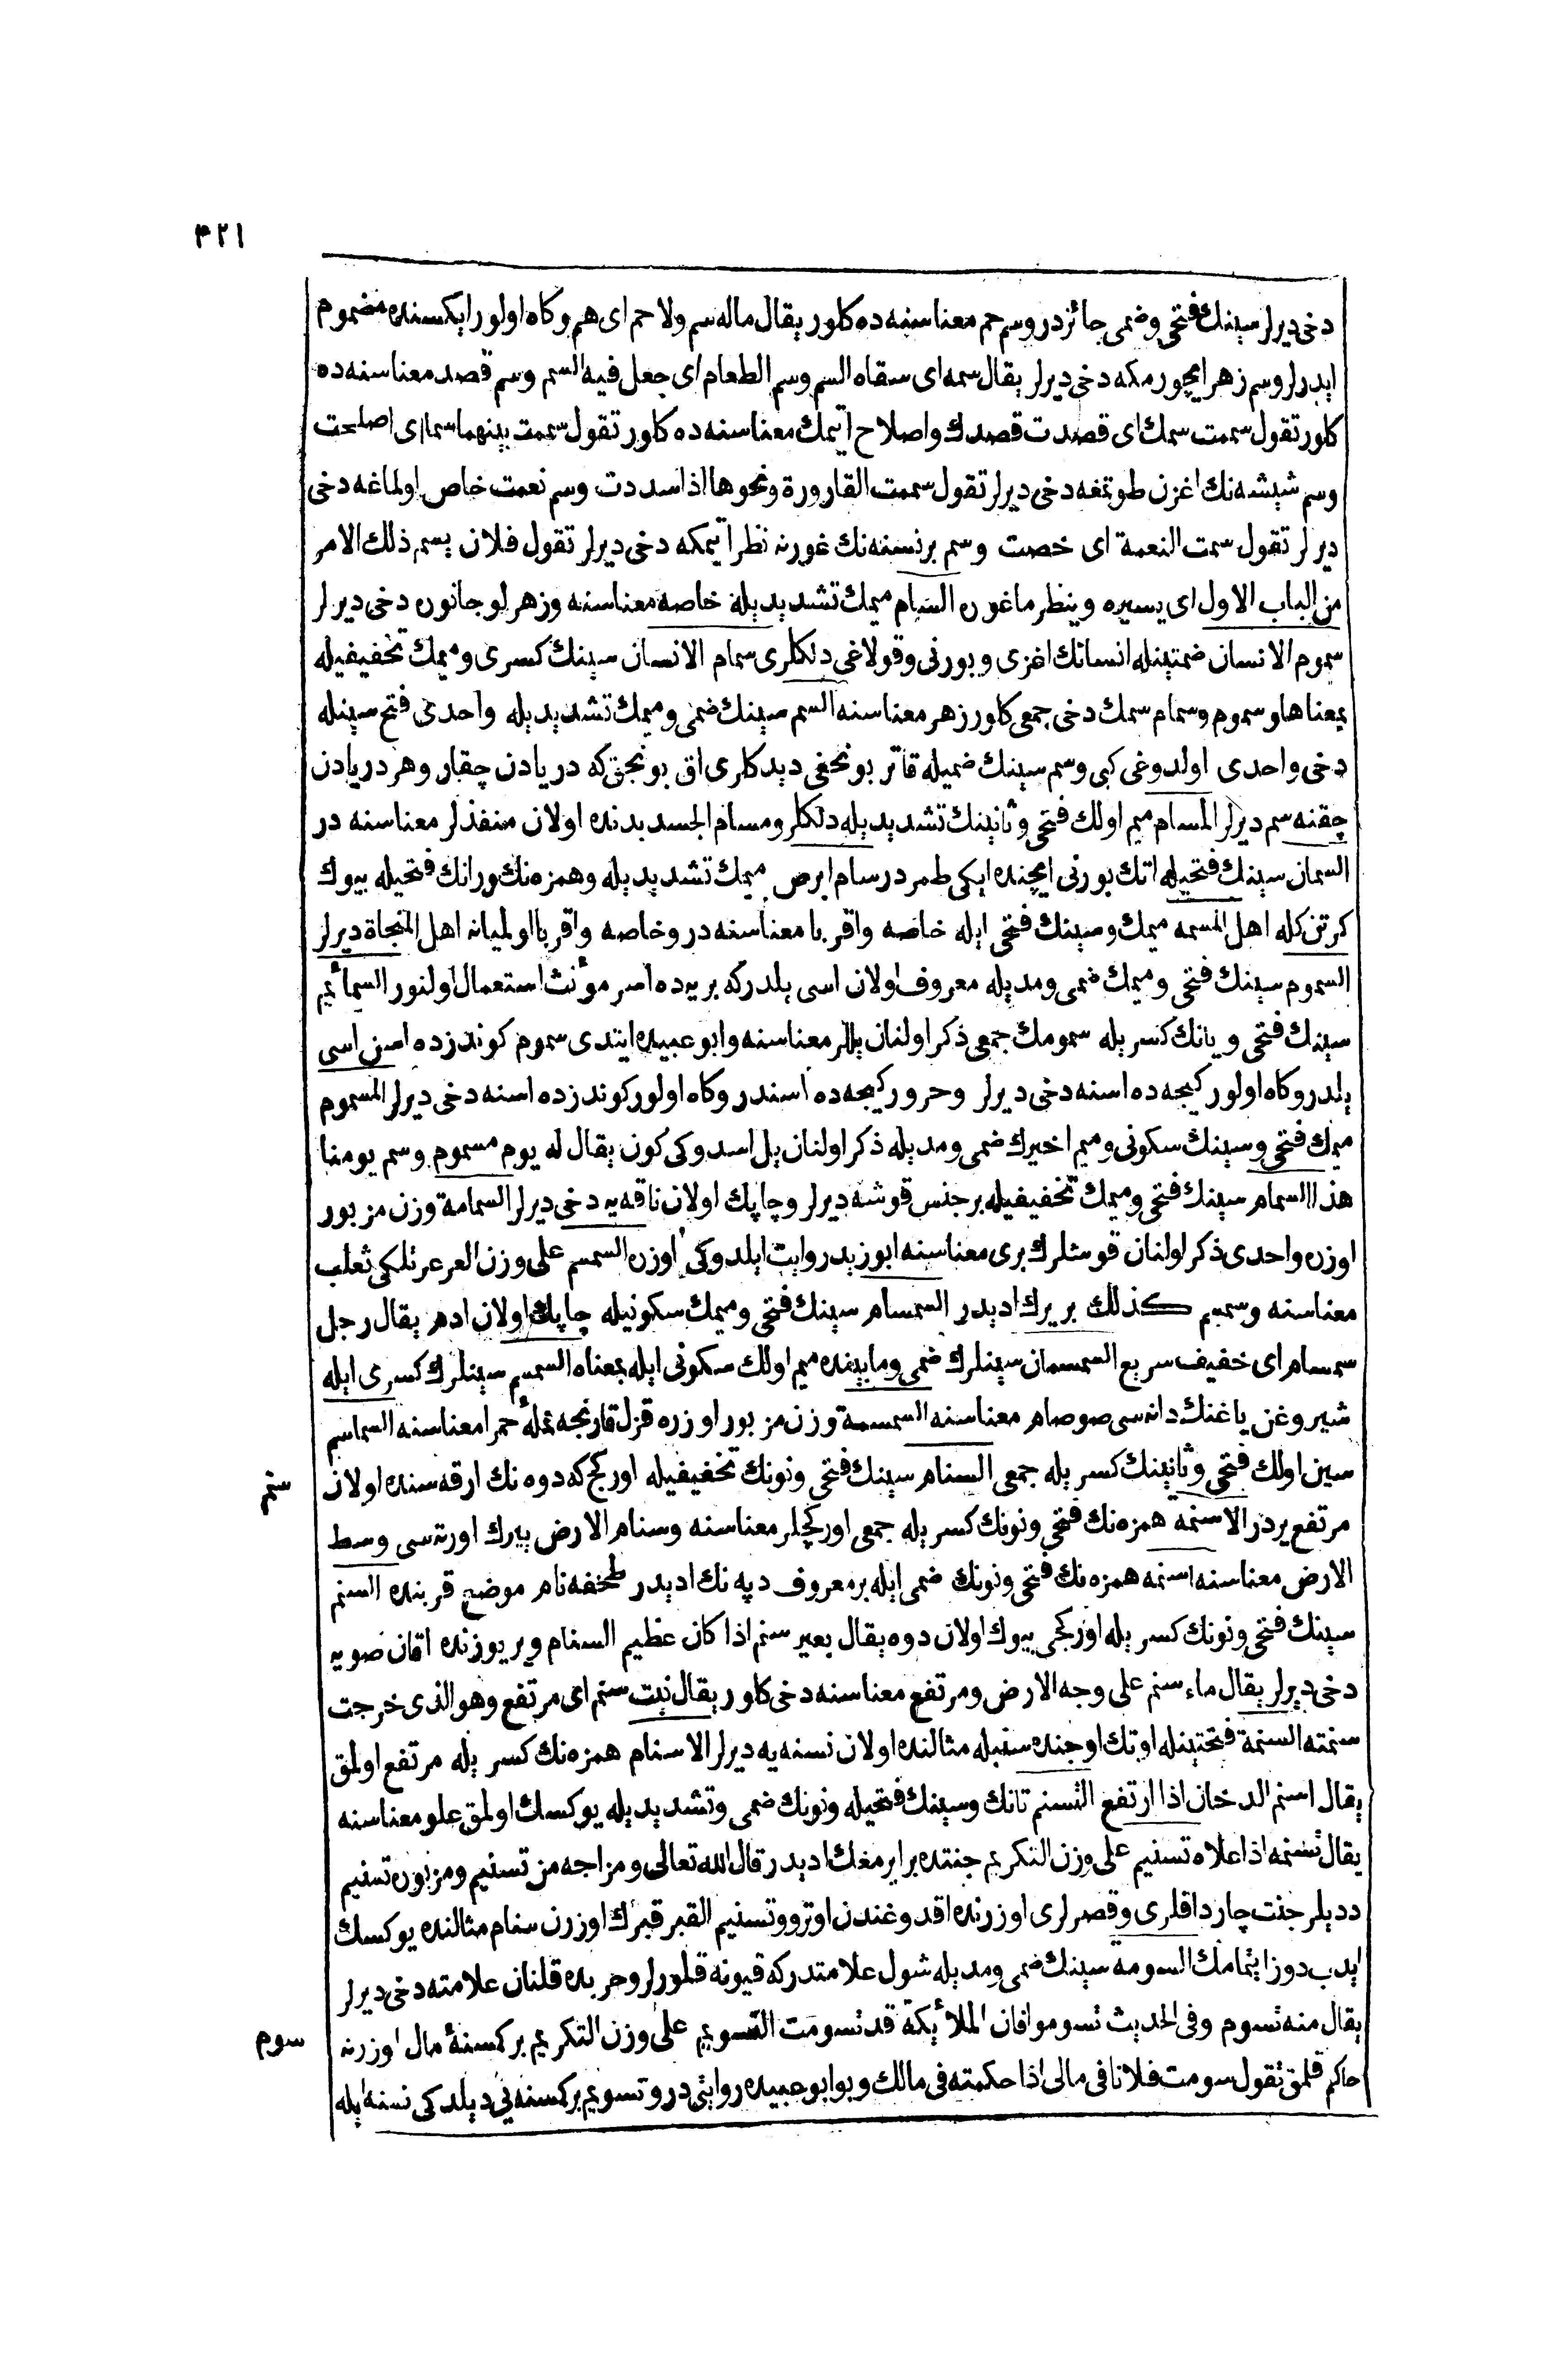 ٤٢١
دخى ديرلر سينك فتحى وضمى جائزدر وسم حم معناسنه ده كلور يقال ماله سم ولا حم اى هم وكاه اولور ايكسنده مضموم
ايدرلر وسم زهر ايچورمكه دخى ديرلر يقال سمه اى سقاه السم وسم الطعام اى جعل فيه السم وسم قصد معناسنه ده
كلور تقول سممت سمك اى قصدت قصدك واصلاح اتمك معناسنه ده كلور تقول سممت بينهما سما اى اصلحت
وسم شيشه نك اغزن طوتمغه دخى ديرلر تقول سممت القارورة ونحوها اذا سددت وسم نعمت خاص اولماغه دخى
ديرلر تقول سمت النعمة اى خصت وسم برنسنه نك غورنه نظر اتمكه دخى ديرلر تقول فلان يسم ذلك الامر
من الباب الاول اى يسبره وينظر ماغوره السام ميمك تشديديله خاصه معناسنه وزهرلو جانوره دخى ديرلر
سموم الانسان ضمتينله انسانك اغزى وبورنى وقولاغى دلكلرى سمام الانسان سينك كسرى وميمك تخفيفيله
بمعناها وسموم وسمام سمك دخى جمعى كلور زهر معناسنه السم سينك ضمى وميمك تشديديله واحدى فتح سينله
دخى واحدى اولدوغى كبى وسم سينك ضميله قاتر بونجغى ديدكلرى اق بونجق كه دريادن چقار وهر دريادن
چقنه سم ديرلر المسام ميم اولك فتحى وثانينك تشديديله دلكلر ومسام الجسد بدنده اولان منفذلر معناسنه در
السمان سينك فتحيله اتك بورنى ايچنده ايكى طمردر سام ابرص ميمك تشديديله وهمزه نك ورانك فتحيله بيوك
كرتن كله اهل المسمه ميمك وسينك فتحى ايله خاصه واقربا معناسنه در وخاصه واقربا اولميانه اهل المنجاة ديرلر
السموم سينك فتحى وميمك ضمى ومديله معروف اولان اسى يلدركه بريه ده اسر مؤنث استعمال اولنور السمائم
سينك فتحى ويانك كسريله سمومك جمعى ذكر اولنان يللر معناسنه وابو عبيده ايتدى سموم كوندزده اسن اسى
يلدر وكاه اولور كيجه ده اسنه دخى ديرلر وحرور كيجه ده اسندر وكاه اولور كوندزده اسنه دخى ديرلر المسموم
ميمك فتحى وسينك سكونى وميم اخيرك ضمى ومديله ذكر اولنان يل اسدوكى كون يقال له يوم مسموم وسم يومنا
هذا السمام سينك فتحى وميمك تخفيفيله برجنس قوشه ديرلر وچاپك اولان ناقه يه دخى ديرلر السمامة وزن مزبور
اوزره واحدى ذكر اولنان قوشلرك برى معناسنه ابوزيد روايت ايلدوكى اوزره السمسم على وزن العرعر تلكى ثعلب
معناسنه وسمسم كذلك بر يرك ادیدر السمسام سينك فتحى وميمك سكونيله چاپك اولان ادم يقال رجل
سمسام اى خفيف سريع السمسمان سينلرك ضمى ومابينده ميم اولك سكونى ايله بمعناه السمسم سينلرك كسرى ايله
شيروغن ياغنك دانه سى صوصام معناسنه السمسمة وزن مزبور اوزره قزل قارنجه نملهٔ حمرا معناسنه السماسم
سين اولك فتحى وثانينك كسريله جمعى السنام سينك فتحى ونونك تخفيفيله اوركج كه دوه نك ارقه سنده اولان
سنم
مرتفع يردر الاسنمه همزه نك فتحى ونونك كسريله جمعى اوركجلر معناسنه وسنام الارض ييرك اورته سى وسط
الارض معناسنه اسنمه همزه نك فتحى ونونك ضمى ايله برمعروف دپه نك اديدر طخفه نام موضع قربنده السنم
سينك فتحى ونونك كسريله اوركجى بيوك اولان دوه يقال بعير سنم اذا كان عظيم السنام وير يوزنده اقان صويه
دخى ديرلر يقال ماء سنم على وجه الارض ومرتفع معناسنه دخى كلور يقال نبت سنم اى مرتفع وهو الذى خرجت
سنمته السنمة فتحتينله اوتك اوجنده سنبله مثالنده اولان نسنه يه ديرلر الاسنام همزه نك كسريله مرتفع اولمق
يقال اسنم الدخان اذا ارتفع التسنم تانك وسينك فتحيله ونونك ضمى وتشديديله يوكسك اولمق علو معناسنه
يقال تسنمه اذا علاه تسنيم على وزن التكريم جنتده برايرمغك اديدر قال الله تعالى ومزاجه من تسنيم ومزبوره تسنيم
دديلر جنت چارداقلرى وقصرلرى اوزرنده اقدوغندن اوترو وتسنيم القبر قبرك اوزرن سنام مثالنده يوكسك
ايدب دوز ايتمامك السومة سينك ضمى ومديله شول علامتدركه قيونه قلورلر وحربده قلنان علامته دخى ديرلر
يقال منه تسوم وفى الحديث تسوموا فان الملائكة قد تسومت التسويم على وزن التكريم بركسنهٔ مال اوزرنه
سوم
حاكم قلمق تقول سومت فلانا فى مالى اذا حكمته فى مالك وبو ابوعبيده روايتى در وتسويم بركسنه يى ديلدكى نسنه ايله